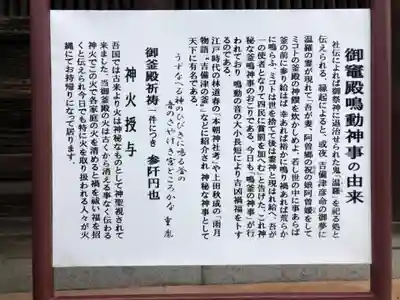 御竈殿鳴動神事の由来
社伝によれば御祭神に退治せられた鬼「温羅」を祀る処と
伝えられる。縁起によると、或夜、吉備津彦命の御夢に
温羅の霊が現れて「吾が妻、阿曽郷の祝の娘阿曽媛をして
ミコトの釜殿の神饌を炊かしめよ。若し世の中に事あらば
釜の前に参り給はば幸あれば裕かに鳴り禍あれば荒らか
に鳴らふ。ミコトは世を捨てて後は霊神と現はれ給へ。吾が
一の使者となりて四民に賞罰を加へむ」と告げた。これ神
秘な釜鳴神事のおこりである。今日も、「鳴釜の神事」が行
われており鳴動の音の大小長短により吉凶禍福をトす
るのである。
江戸時代の林道春の「本朝神社考」や上田秋成の「雨月
物語」「吉備津の釜」などに紹介され神秘な神事として
天下に有名である。
うすなへる神のひびきに鳴る釜の
音のさやけき宮ところかな 重胤
御釜殿祈祷 一件につき 参阡円也
神火授与
吾国では古来より火は神秘なものとして神聖視されて
来ました。当御釜殿の火は古くから消える事なく伝わる
神火でこの火で各家庭の火を清めると禍を祓い福を招
くと伝えられ今日でも特に火を取り扱われる人々が火
縄にてお持帰りになって居ります。